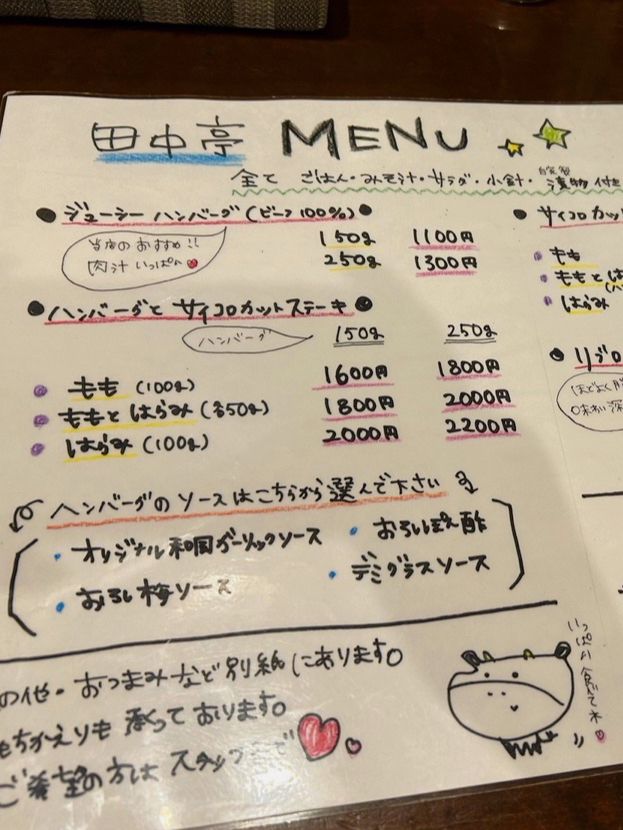 田中亭 MENU
全て ごはん・みそ汁・サラダ・小鉢・自家製漬物付き
●ジューシーハンバーグ(ビーフ100%)●
当店のおすすめ!!
肉汁いっぱい
150g 1100円
250g 1300円
●ハンバーグとサイコロカットステーキ●
ハンバーグ 150g 250g
もも(100g) 1600円 1800円
ももとはらみ(各50g) 1800円 2000円
はらみ(100g) 2000円 2200円
ハンバーグのソースはこちらから選んで下さい
・オリジナル和風ガーリックソース ・おろしぽん酢
・おろし梅ソース ・デミグラスソース
の他・おつまみなど別紙にあります。
もちかえりも承っております。
ご希望の方はスタッフまで
いっぱい食べてネ
●サイコロカッ
もも
ももとはら
はらみ
●リブロ
ほどよく脂
味わい深